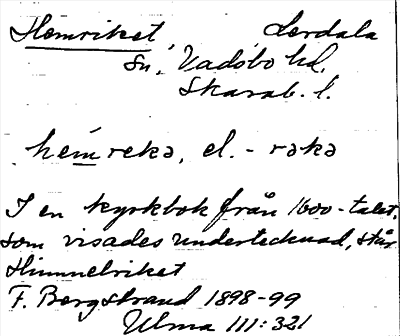 Hemriket, Lerdala
sn, Vadsbo hd,
Skarab. l.
hémreka, el. -rəka
I en kyrkbok från 1600-talet,
som visades undertecknad, står
Himmelriket
F. Bergstrand 1898-99
Ulma 111:321